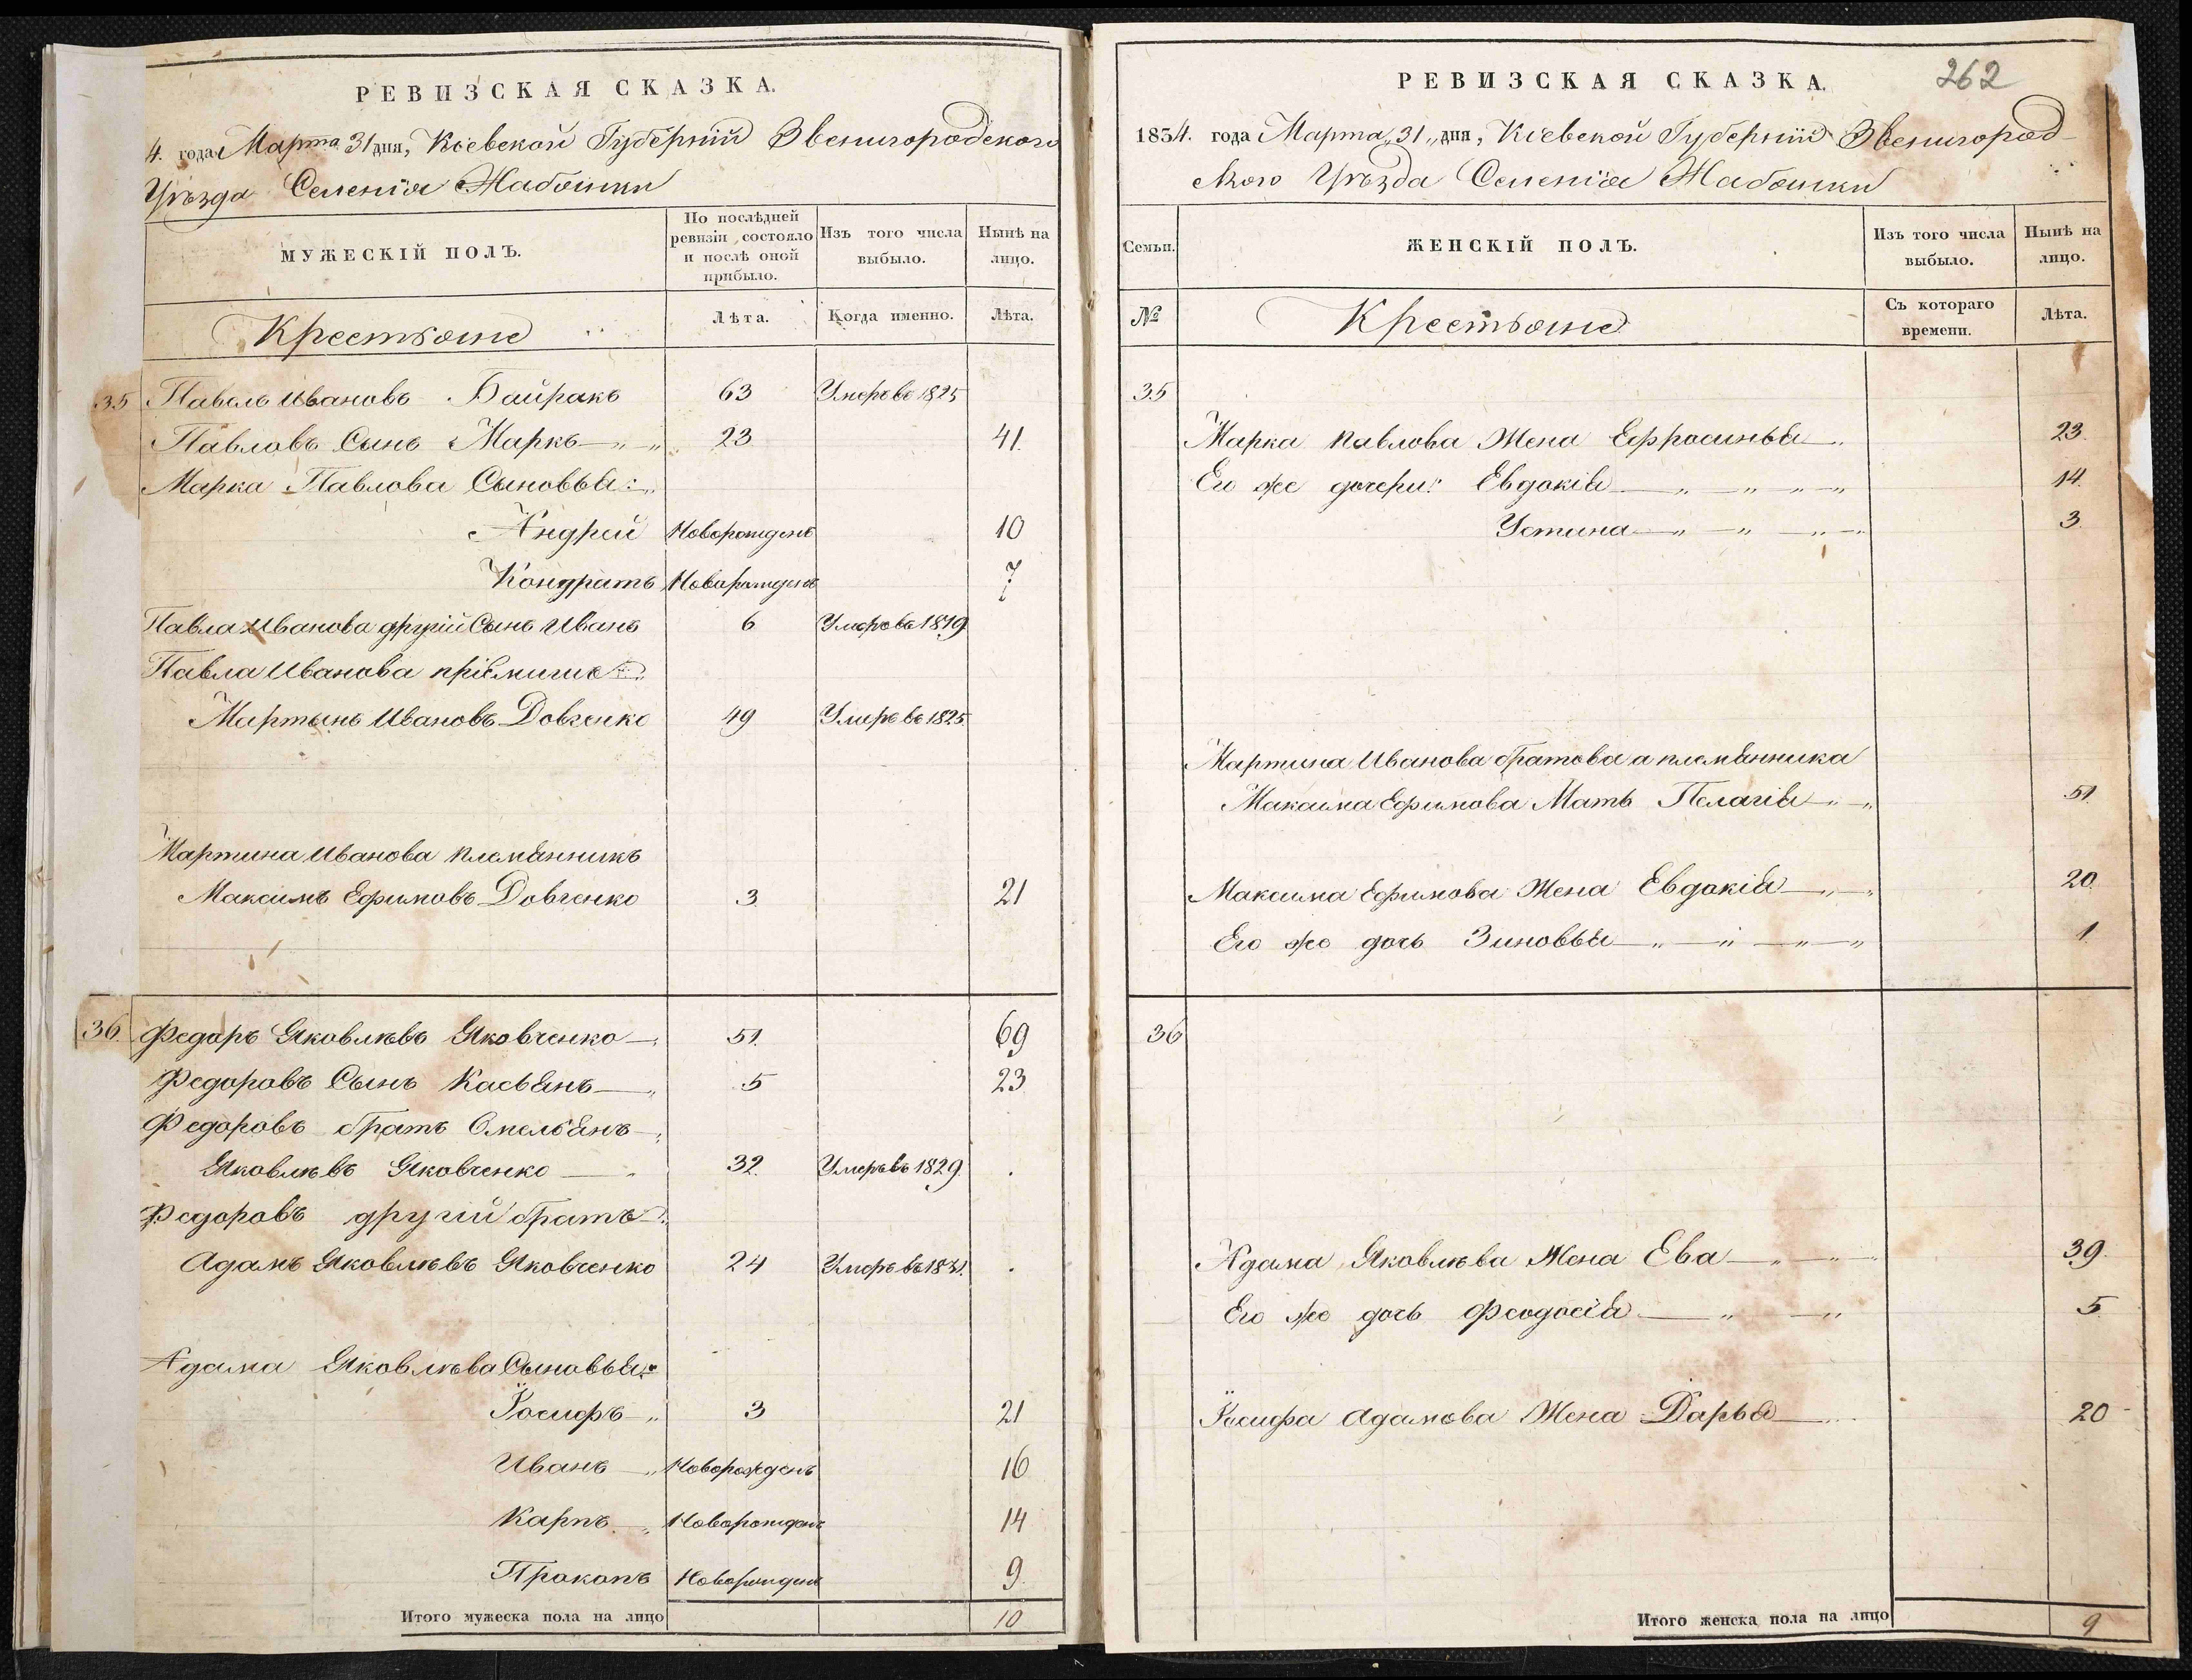 РЕВИЗСКАЯ СКАЗКА.
4. года Марта 31 дня, Кіевской Губерніи Звенигородскаго
Уѣзда Селенія Жабошки
МУЖЕСКІЙ ПОЛЪ.
По послѣдней ревизіи состояло и послѣ оной прибыло.
Изъ того числа выбыло.
Нынѣ на лицо.
Крестьяне
Лѣта.
Когда именно.
Лѣта.
35 Павелъ Ивановъ Байракъ 63 Умеръ въ 1825
Павловъ Сынъ Маркъ 23 41.
Марка Павлова Сыновья:
Андрей Новорожденъ 10
Кондратъ Новорожденъ 7
Павла Иванова другій Сынъ Иванъ 6 Умеръ въ 1819
Павла Иванова пріемишъ
Мартынъ Ивановъ Довгенко 49 Умеръ въ 1825.
Мартина Иванова племянникъ
Максимъ Ефимовъ Довгенко 3 21
36. Федоръ Яковлѣвъ Яковченко 51. 69
Федоровъ Сынъ Касьянъ 5 23
Федоровъ братъ Омельянъ
Яковлѣвъ Яковченко 32. Умеръ въ 1829.
Федоровъ другій братъ
Адамъ Яковлѣвъ Яковченко 24 Умеръ въ 1831.
Адама Яковлѣва Сыновья:
Іосифъ 3 21
Иванъ Новорожденъ 16
Карпъ Новорожденъ 14
Прокопъ Новорожденъ 9.
Итого мужеска пола на лицо 10
262
РЕВИЗСКАЯ СКАЗКА.
1834. года Марта „31„ дня, Кіевской Губерніи Звенигород-
скаго Уѣзда Селенія Жабошки
Семьи.
ЖЕНСКІЙ ПОЛЪ.
Изъ того числа выбыло.
Нынѣ на лицо.
№
Крестьяне
Съ котораго времени.
Лѣта.
35
Марка Павлова Жена Ефросинья 23.
Его же дочери: Евдокія 14.
Устина 3.
Мартина Иванова братова а племянника
Максима Ефимова Мать Пелагія 51.
Максима Ефимова Жена Евдокія 20.
Его же дочь Зиновья 1.
36
Адама Яковлѣва Жена Ева 39.
Его же дочь Феодосія 5.
Іосифа Адамова Жена Дарья 20
Итого женска пола на лицо 9